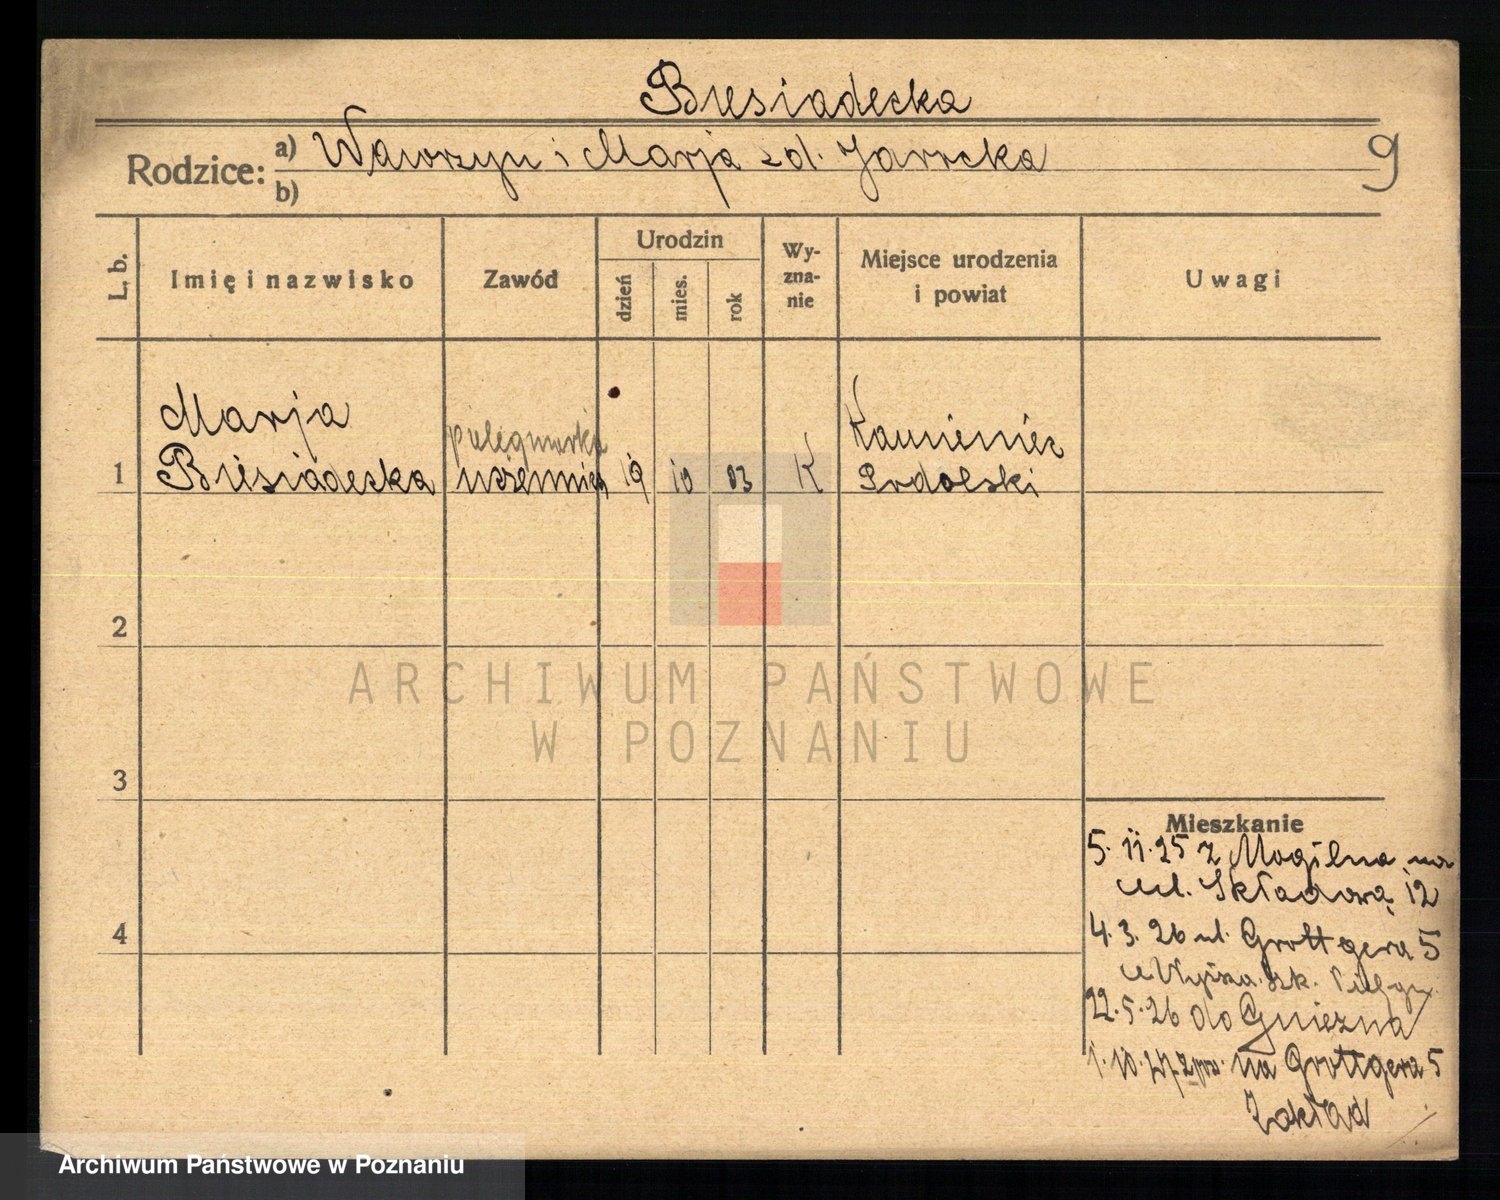 Biesiadecka
Rodzice: a) Wawrzyn i Marja z d. Jarecka
b)
9
L. b. Imię i nazwisko Zawód Urodzin dzień mies. rok Wy-zna-nie Miejsce urodzenia i powiat Uwagi
Marja pielęgniarka Kamieniec
1 Biesiadecka uczennica 19 10 03 K Podolski
2
ARCHIWUM PAŃSTWOWE
W POZNANIU
3
Mieszkanie
5. 11. 25 z Mogilna na
ul. Składową 12
4
4. 3. 26 ul. Grottgera 5
Wyższa szk. Pielęgn.
22. 5. 26 do Gniezna
1. 10. 27 na Grottgera 5
Zakład
Archiwum Państwowe w Poznaniu